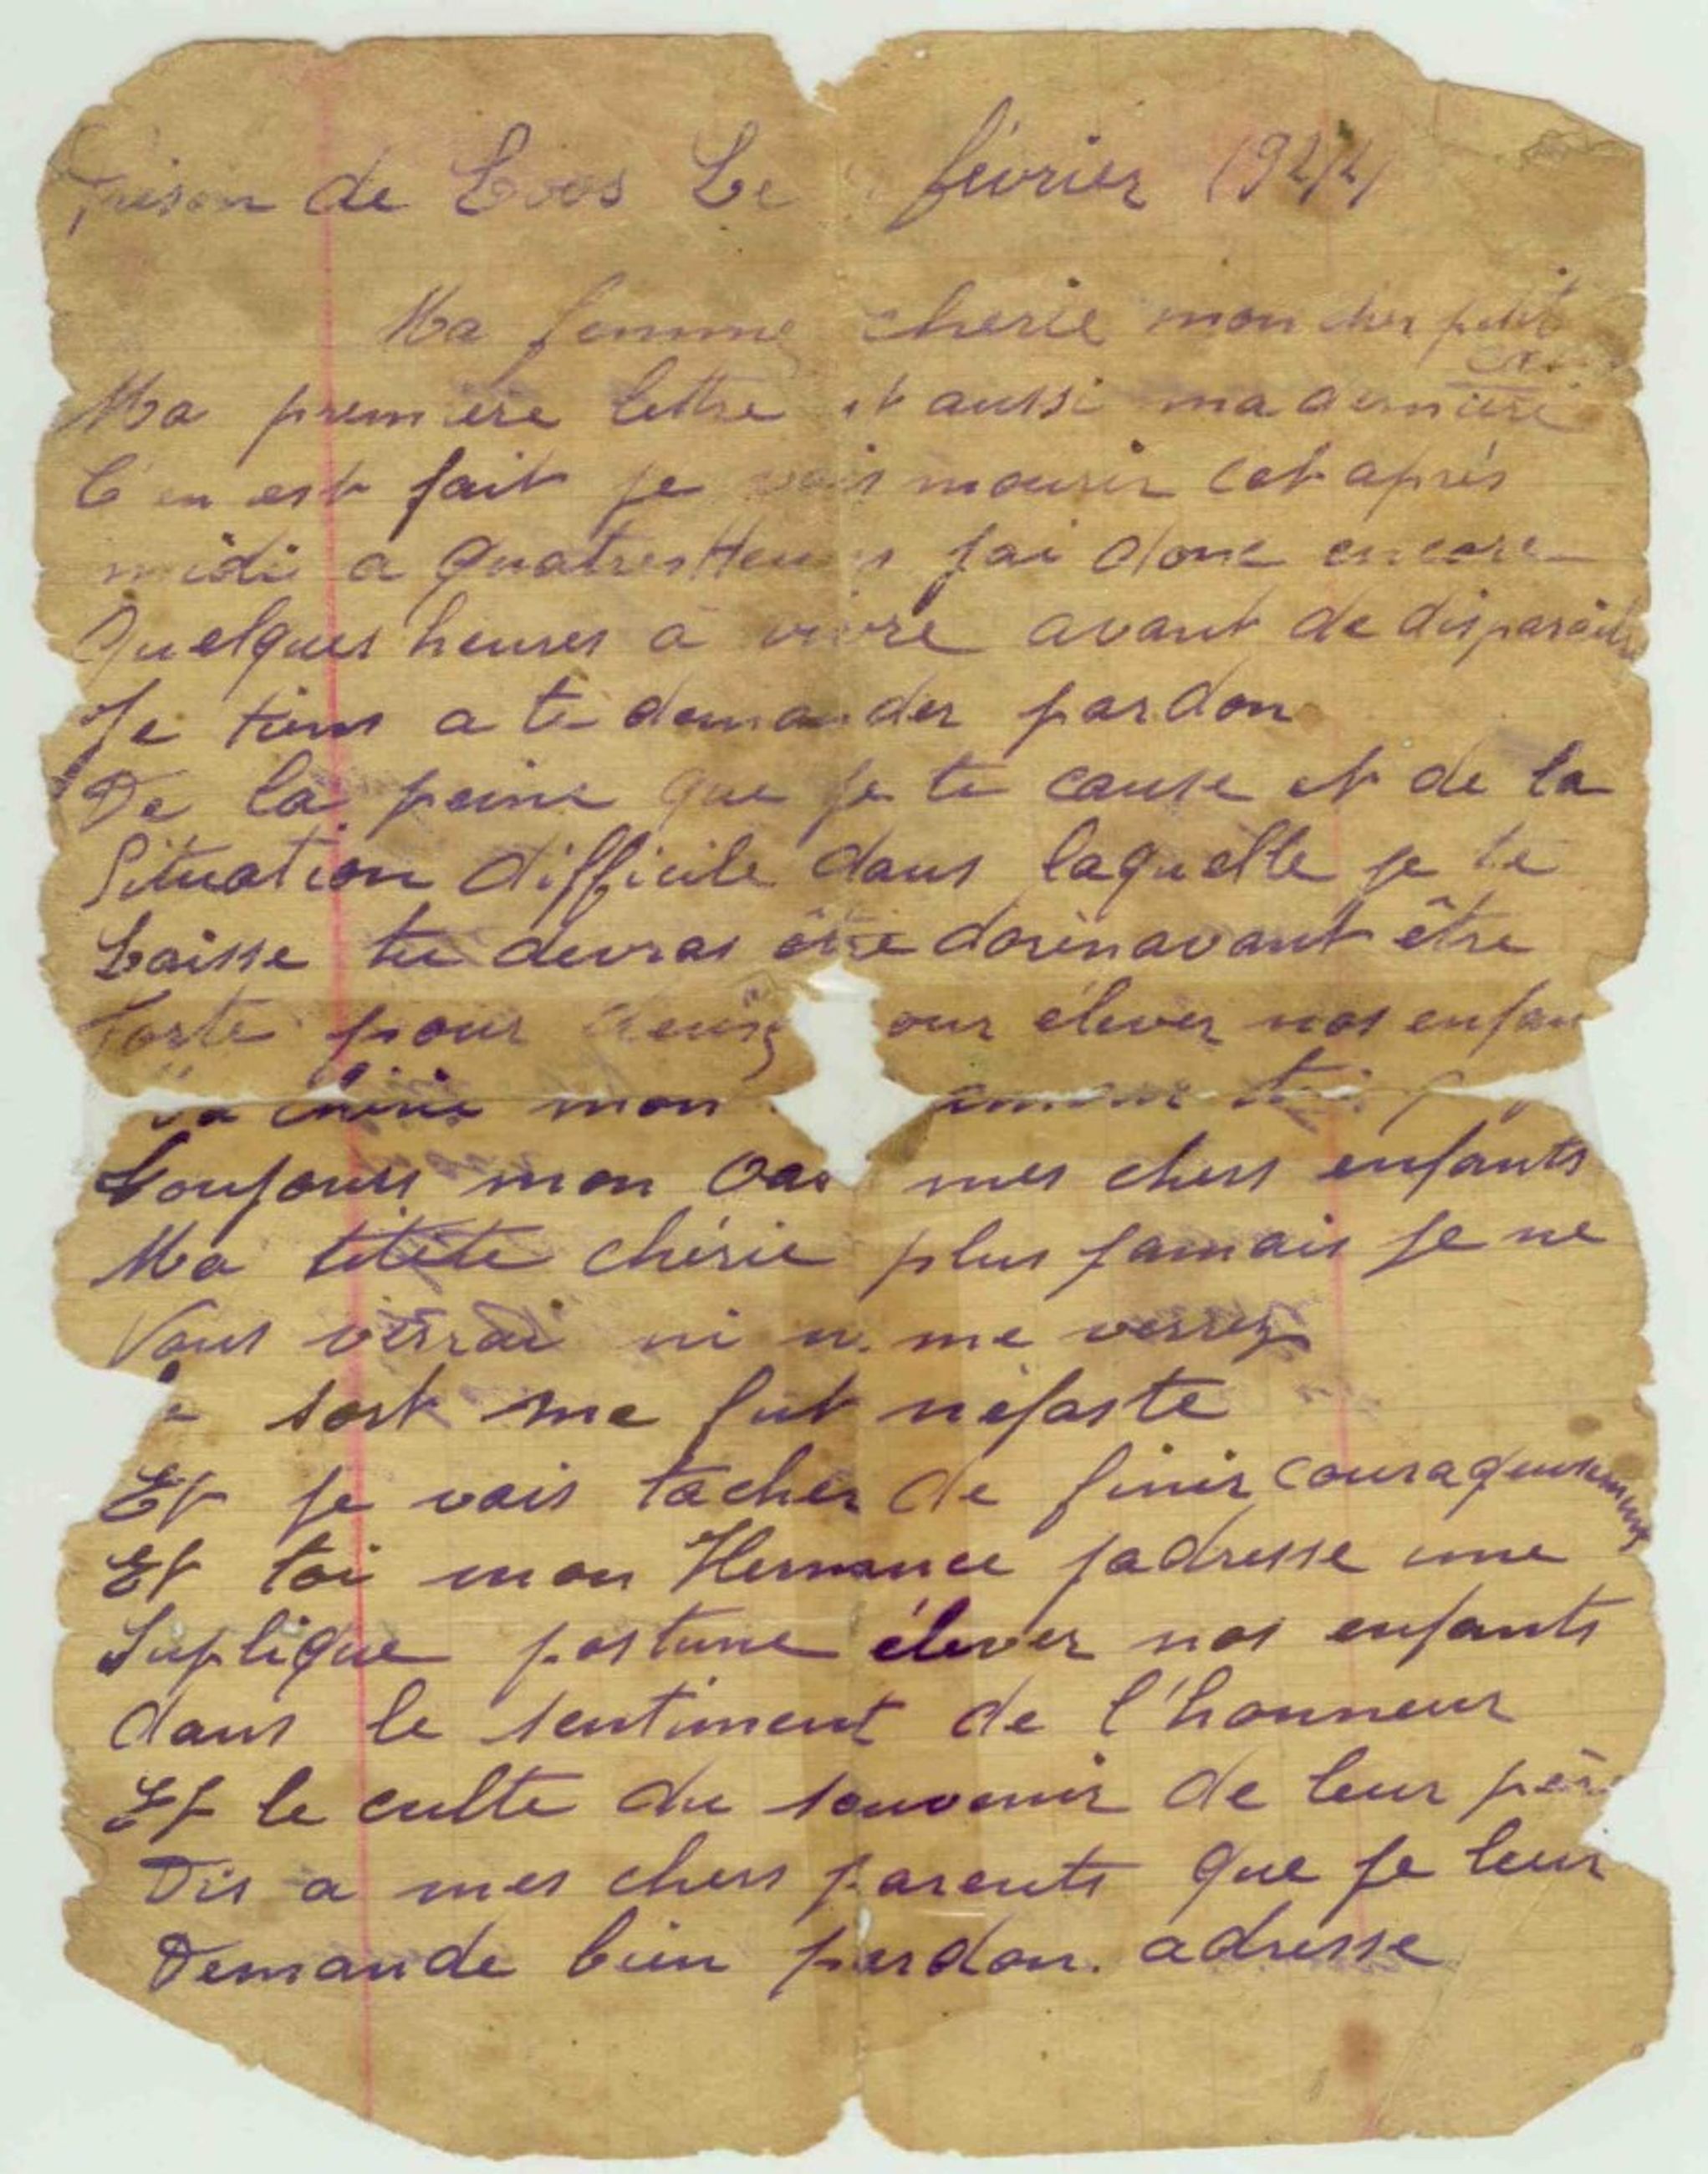 Prison de Loos Le février 1944
Ma femme cherie mon cher petit
Ma premiere lettre et aussi ma derniere
C'en est fait je vais mourir cet après
midi a Quatres Heures jai donc encore
Quelques heures a vivre avant de disparaitre
Je tiens a te demander pardon
De la peine que je te cause et de la
Situation difficile dans laquelle je te
Laisse tu devras être dorénavant être
Forte pour deux our élever nos enfan
chérie mon amour
Toujours mon mes chers enfants
Ma titite chérie plus jamais je ne
Vous verrai ni me verrez
sort me fut néfaste
Et je vais tacher de finir courageusement
Et toi mon Hermance jadresse une
Suplique postume élever nos enfants
dans le sentiment de l'honneur
Et le culte du souvenir de leur père
Dis a mes chers parents que je leur
Demande bien pardon. adresse